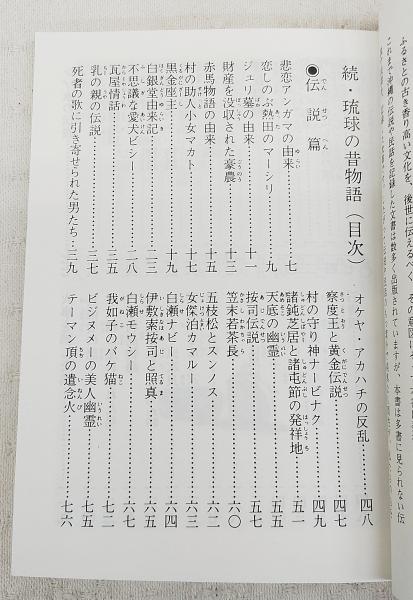 ふるさとの古き香り高い文化を、後世に伝えるべく、その意図
これまで沖縄の伝説や民話を記録した文書は数多く出版されていますが、本書は多書に見られない伝
続・琉球の昔物語（目次）
●伝説篇
悲恋アンガマの由来…………七
恋しのぶ熱田のマーシリ…………九
ジュリ墓の由来…………十一
財産を没収された豪農…………十三
赤馬物語の由来…………十五
村の助人小女マカト…………十七
黒金座主…………十九
白銀堂由来記…………二三
不思議な愛犬ビシー…………二八
瓦屋情話…………三五
乳の親の伝説…………三七
死者の歌に引き寄せられた男たち…三九
オケヤ・アカハチの反乱…………四八
察度王と黄金伝説…………四七
村の守り神ナービナク…………四九
諸鈍芝居と諸屯節の発祥地…………五一
天底の幽霊…………五五
按司伝説…………五七
笠末若茶良…………六〇
五枝松とスンノス…………六二
女傑泊カマルー…………六三
白瀬ナビー…………六四
伊敷索按司と照真…………六五
白瀬モウシー…………六七
我如子のバケ猫…………七二
ビジヌメーの美人幽霊…………七五
テーマン頂の遺念火…………七六